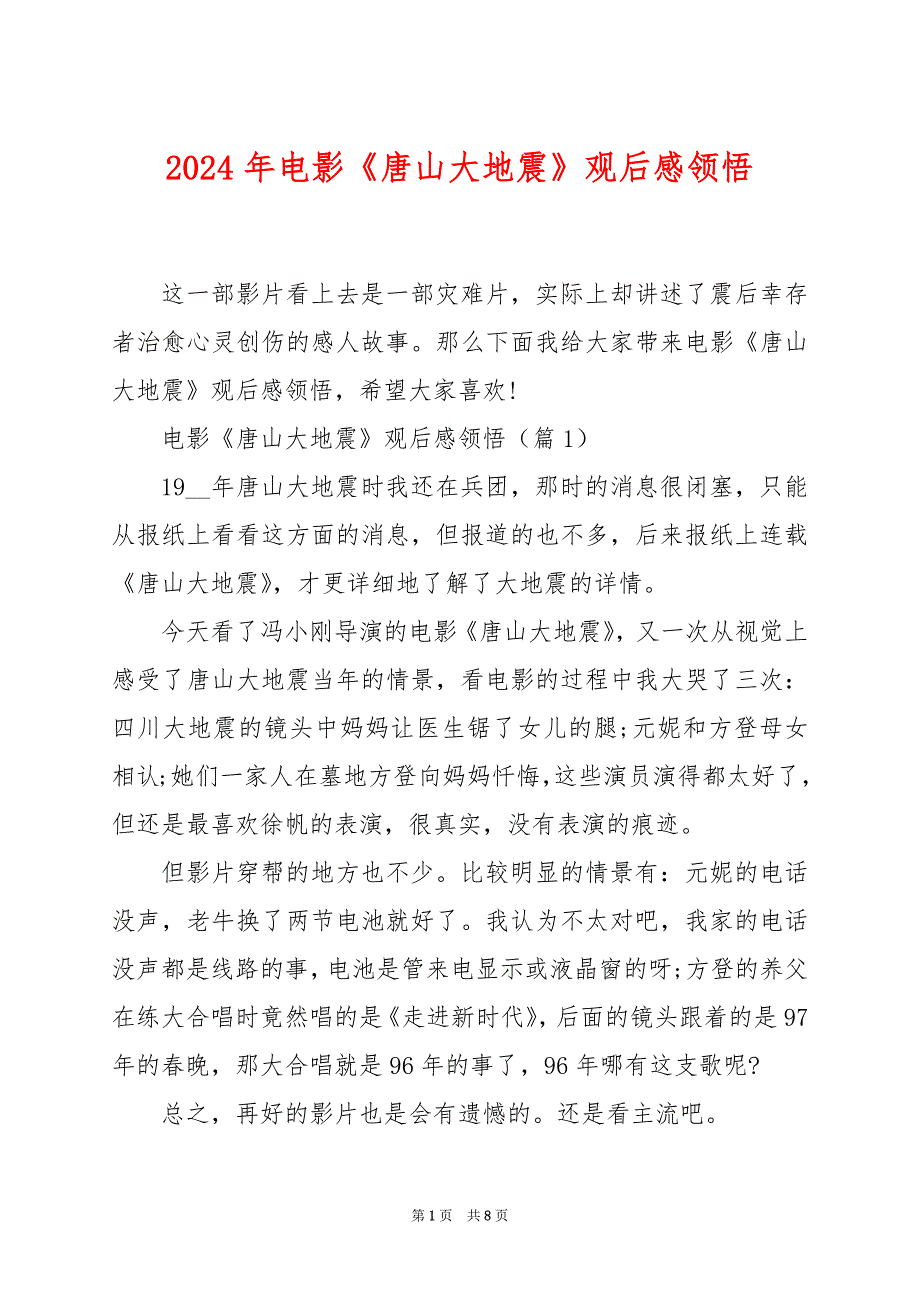 2024年电影《唐山大地震》观后感领悟
这一部影片看上去是一部灾难片，实际上却讲述了震后幸存
者治愈心灵创伤的感人故事。那么下面我给大家带来电影《唐山
大地震》观后感领悟，希望大家喜欢!
电影《唐山大地震》观后感领悟（篇1）
19__年唐山大地震时我还在兵团，那时的消息很闭塞，只能
从报纸上看看这方面的消息，但报道的也不多，后来报纸上连载
《唐山大地震》，才更详细地了解了大地震的详情。
今天看了冯小刚导演的电影《唐山大地震》，又一次从视觉上
感受了唐山大地震当年的情景，看电影的过程中我大哭了三次：
四川大地震的镜头中妈妈让医生锯了女儿的腿;元妮和方登母女
相认;她们一家人在墓地方登向妈妈忏悔，这些演员演得都太好了，
但还是最喜欢徐帆的表演，很真实，没有表演的痕迹。
但影片穿帮的地方也不少。比较明显的情景有：元妮的电话
没声，老牛换了两节电池就好了。我认为不太对吧，我家的电话
没声都是线路的事，电池是管来电显示或液晶窗的呀;方登的养父
在练大合唱时竟然唱的是《走进新时代》，后面的镜头跟着的是97
年的春晚，那大合唱就是96年的事了，96年哪有这支歌呢?
总之，再好的影片也是会有遗憾的。还是看主流吧。
第1页 共8页